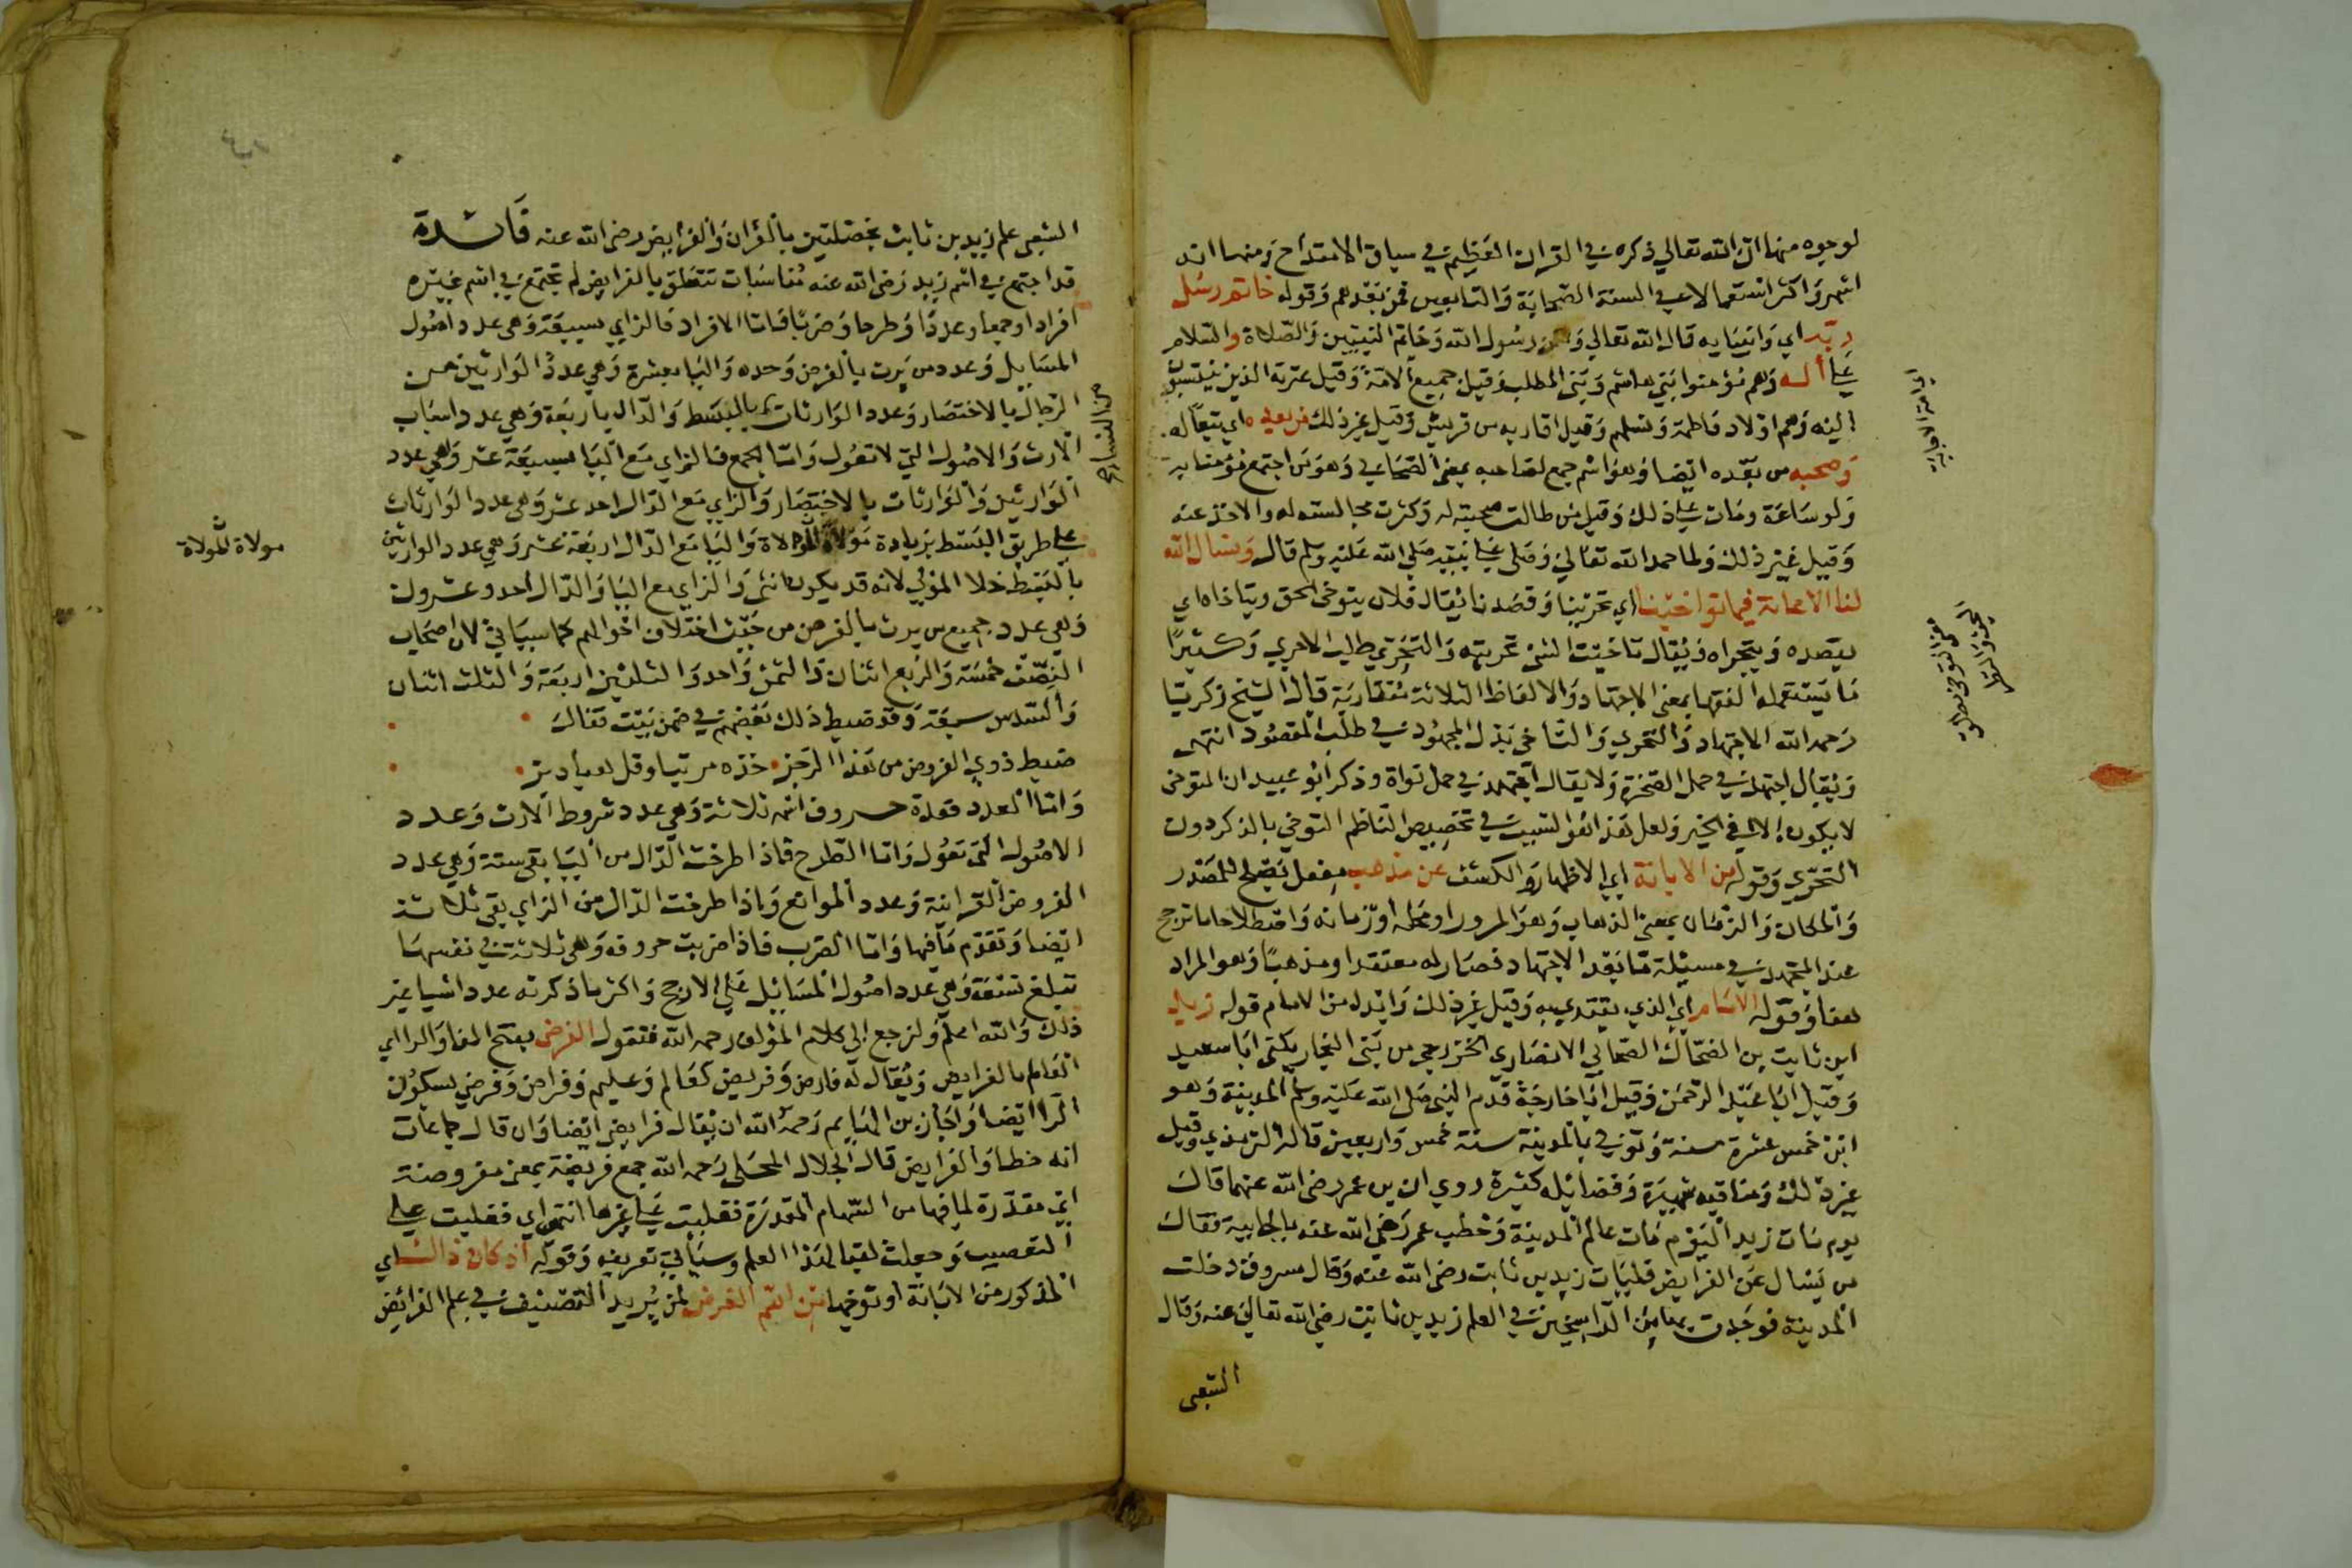 لوجوه منها ان الله تعالي ذكره في القران العظيم في سياق الامتداح ومنها انه
اشهر واكثر استعمالا في السنة الصحابة والتابعين فمن بعدهم وقوله خاتم رسل
ربه اي وانبيايه قال الله تعالي ولكن رسول الله وخاتم النبيين والصلاة والسلام
علي اله وهم مؤمنوا بني هاشم وبني المطلب وقيل جميع الامة وقيل عترته الذين ينتسبون
اليه وهم اولاد فاطمة ونسلهم وقيل اقاربه من قريش وقيل غير ذلك من بعده اي تبعا له
وصحبه من بعده ايضا وهو اسم جمع لصاحبه بمعني الصحابي وهو من اجتمع مؤمنا به
ولو ساعة ومات علي ذلك وقيل من طالت صحبته له وكثرت مجالسته له والاخذ عنه
وقيل غير ذلك ولما حمد الله تعالي وصلي علي نبيه صلي الله عليه وسلم قال ونسال الله
لنا الاعانة فيما توخينا اي تحرينا وقصدنا يقال فلان يتوخي الحق ويتاخاه اي
يقصده ويتحراه ويقال تاخيت الشي تحريته والتحري طلب الاحري وكثيرا
ما يستعمله الفقها بمعني الاجتهاد والالفاظ الثلاثة متقاربة قال الشيخ زكريا
رحمه الله الاجتهاد والتحري والتاخي بذل المجهود في طلب المقصود انتهي
ويقال اجتهد في حمل الصخرة ولا يقال اجتهد في حمل نواة وذكر ابو عبيد ان التوخي
لا يكون الا في الخير ولعل هذا هو السبب في تخصيص الناظم التوخي بالذكر دون
التحري وقوله من الابانة اي الاظهار والكشف عن مذهب مفعل يصلح للمصدر
والمكان والزمان بمعني الذهاب وهو المرور او محله او زمانه واصطلاحا ما ترجح
عند المجتهد في مسئلة ما بعد الاجتهاد فصار له معتقدا ومذهبا وهو المراد
هنا وقوله الامام اي الذي يقتدي به وقيل غير ذلك وابدل من الامام قوله زيد
ابن ثابت بن الضحاك الصحابي الانصاري الخزرجي من بني النجار يكني ابا سعيد
وقيل ابا عبد الرحمن وقيل ابا خارجة قدم النبي صلي الله عليه وسلم المدينة وهو
ابن خمس عشرة سنة وتوفي بالمدينة سنة خمس واربعين قاله الترمذي وقيل
غير ذلك ومناقبه شهيرة وفضائله كثيرة روي ان بن عمر رضي الله عنهما قال
يوم مات زيد اليوم مات عالم المدينة وخطب عمر رضي الله عنه بالجابية فقال
من يسال عن الفرايض فليات زيد بن ثابت رضي الله عنه وقال مسروق دخلت
المدينة فوجدت بها من الراسخين في العلم زيد بن ثابت رضي الله تعالي عنه وقال
الشعبي
الشعبي علم زيد بن ثابت بخصلتين بالقران والفرايض رضي الله عنه فائدة
قد اجتمع في اسم زيد رضي الله عنه مناسبات تتعلق بالفرايض لم تجتمع في اسم غيره
افرادا وجمعا وعددا وطرحا وضربا فاما الافراد فالزاي بسبعة وهي عدد اصول
المسايل وعدد من يرث بالفرض وحده واليا بعشرة وهي عدد الوارثين من
الرجال بالاختصار وعدد الوارثات بالبسط والدال باربعة وهي عدد اسباب
من النساء
الارث والاصول التي لا تعول واما الجمع فالزاي مع اليا سبعة عشر وهي عدد
الوارثين والوارثات بالاختصار والزاي مع الدال احد عشر وهي عدد الوارثات
علي طريق البسط بزيادة مولاة المولاة واليا مع الدال اربعة عشر وهي عدد الوارثين
مولاة المولاة
بالبسط خلا المولي لانه قد يكون انثي والزاي مع اليا والدال احد وعشرون
وهي عدد جميع من يرث بالفرض من حيث اختلاف احوالهم كما سياتي لان اصحاب
النصف خمسة والربع اثنان والثمن واحد والثلثين اربعة والثلث اثنان
والسدس سبعة وقد ضبط ذلك بعضهم في ضمن بيت فقال
ضبط ذوي الفروض من هذا الرجز خذه مرتبا وقل هبادبز
واما العدد فعدة حروف اسمه ثلاثة وهي عدد شروط الارث وعدد
الاصول التي تعول واما الطرح فاذا طرحت الدال من اليا بقي ستة وهي عدد
الفروض القرانية وعدد الموانع واذا طرحت الدال من الزاي بقي ثلاثة
ايضا وتقدم ما فيها واما الضرب فاذا ضربت حروفه وهي ثلاثة في نفسها
تبلغ تسعة وهي عدد اصول المسايل علي الارجح واكثر ما ذكرته عدد اشيا غير
ذلك والله اعلم ولنرجع الي كلام المؤلف رحمه الله فنقول الفرضي بفتح الفا والرا اي
العالم بالفرايض ويقال له فارض وفريض كعالم وعليم وفراض وفرضي بسكون
الرا ايضا واجاز بن الهايم رحمه الله ان يقال فرايضي ايضا وان قال جماعات
انه خطا والفرايض قال الجلال المحلي رحمه الله جمع فريضة بمعني مفروضة
اي مقدرة لما فيها من السهام المقدرة فغلبت علي غيرها انتهي اي فغلبت علي
التعصيب وجعلت لقبا لهذا العلم وسياتي تعريفه وقوله اذ كان ذاك اي
المذكور من الابانة او توخيها من اهم الغرض لمن يريد التصنيف في علم الفرائض